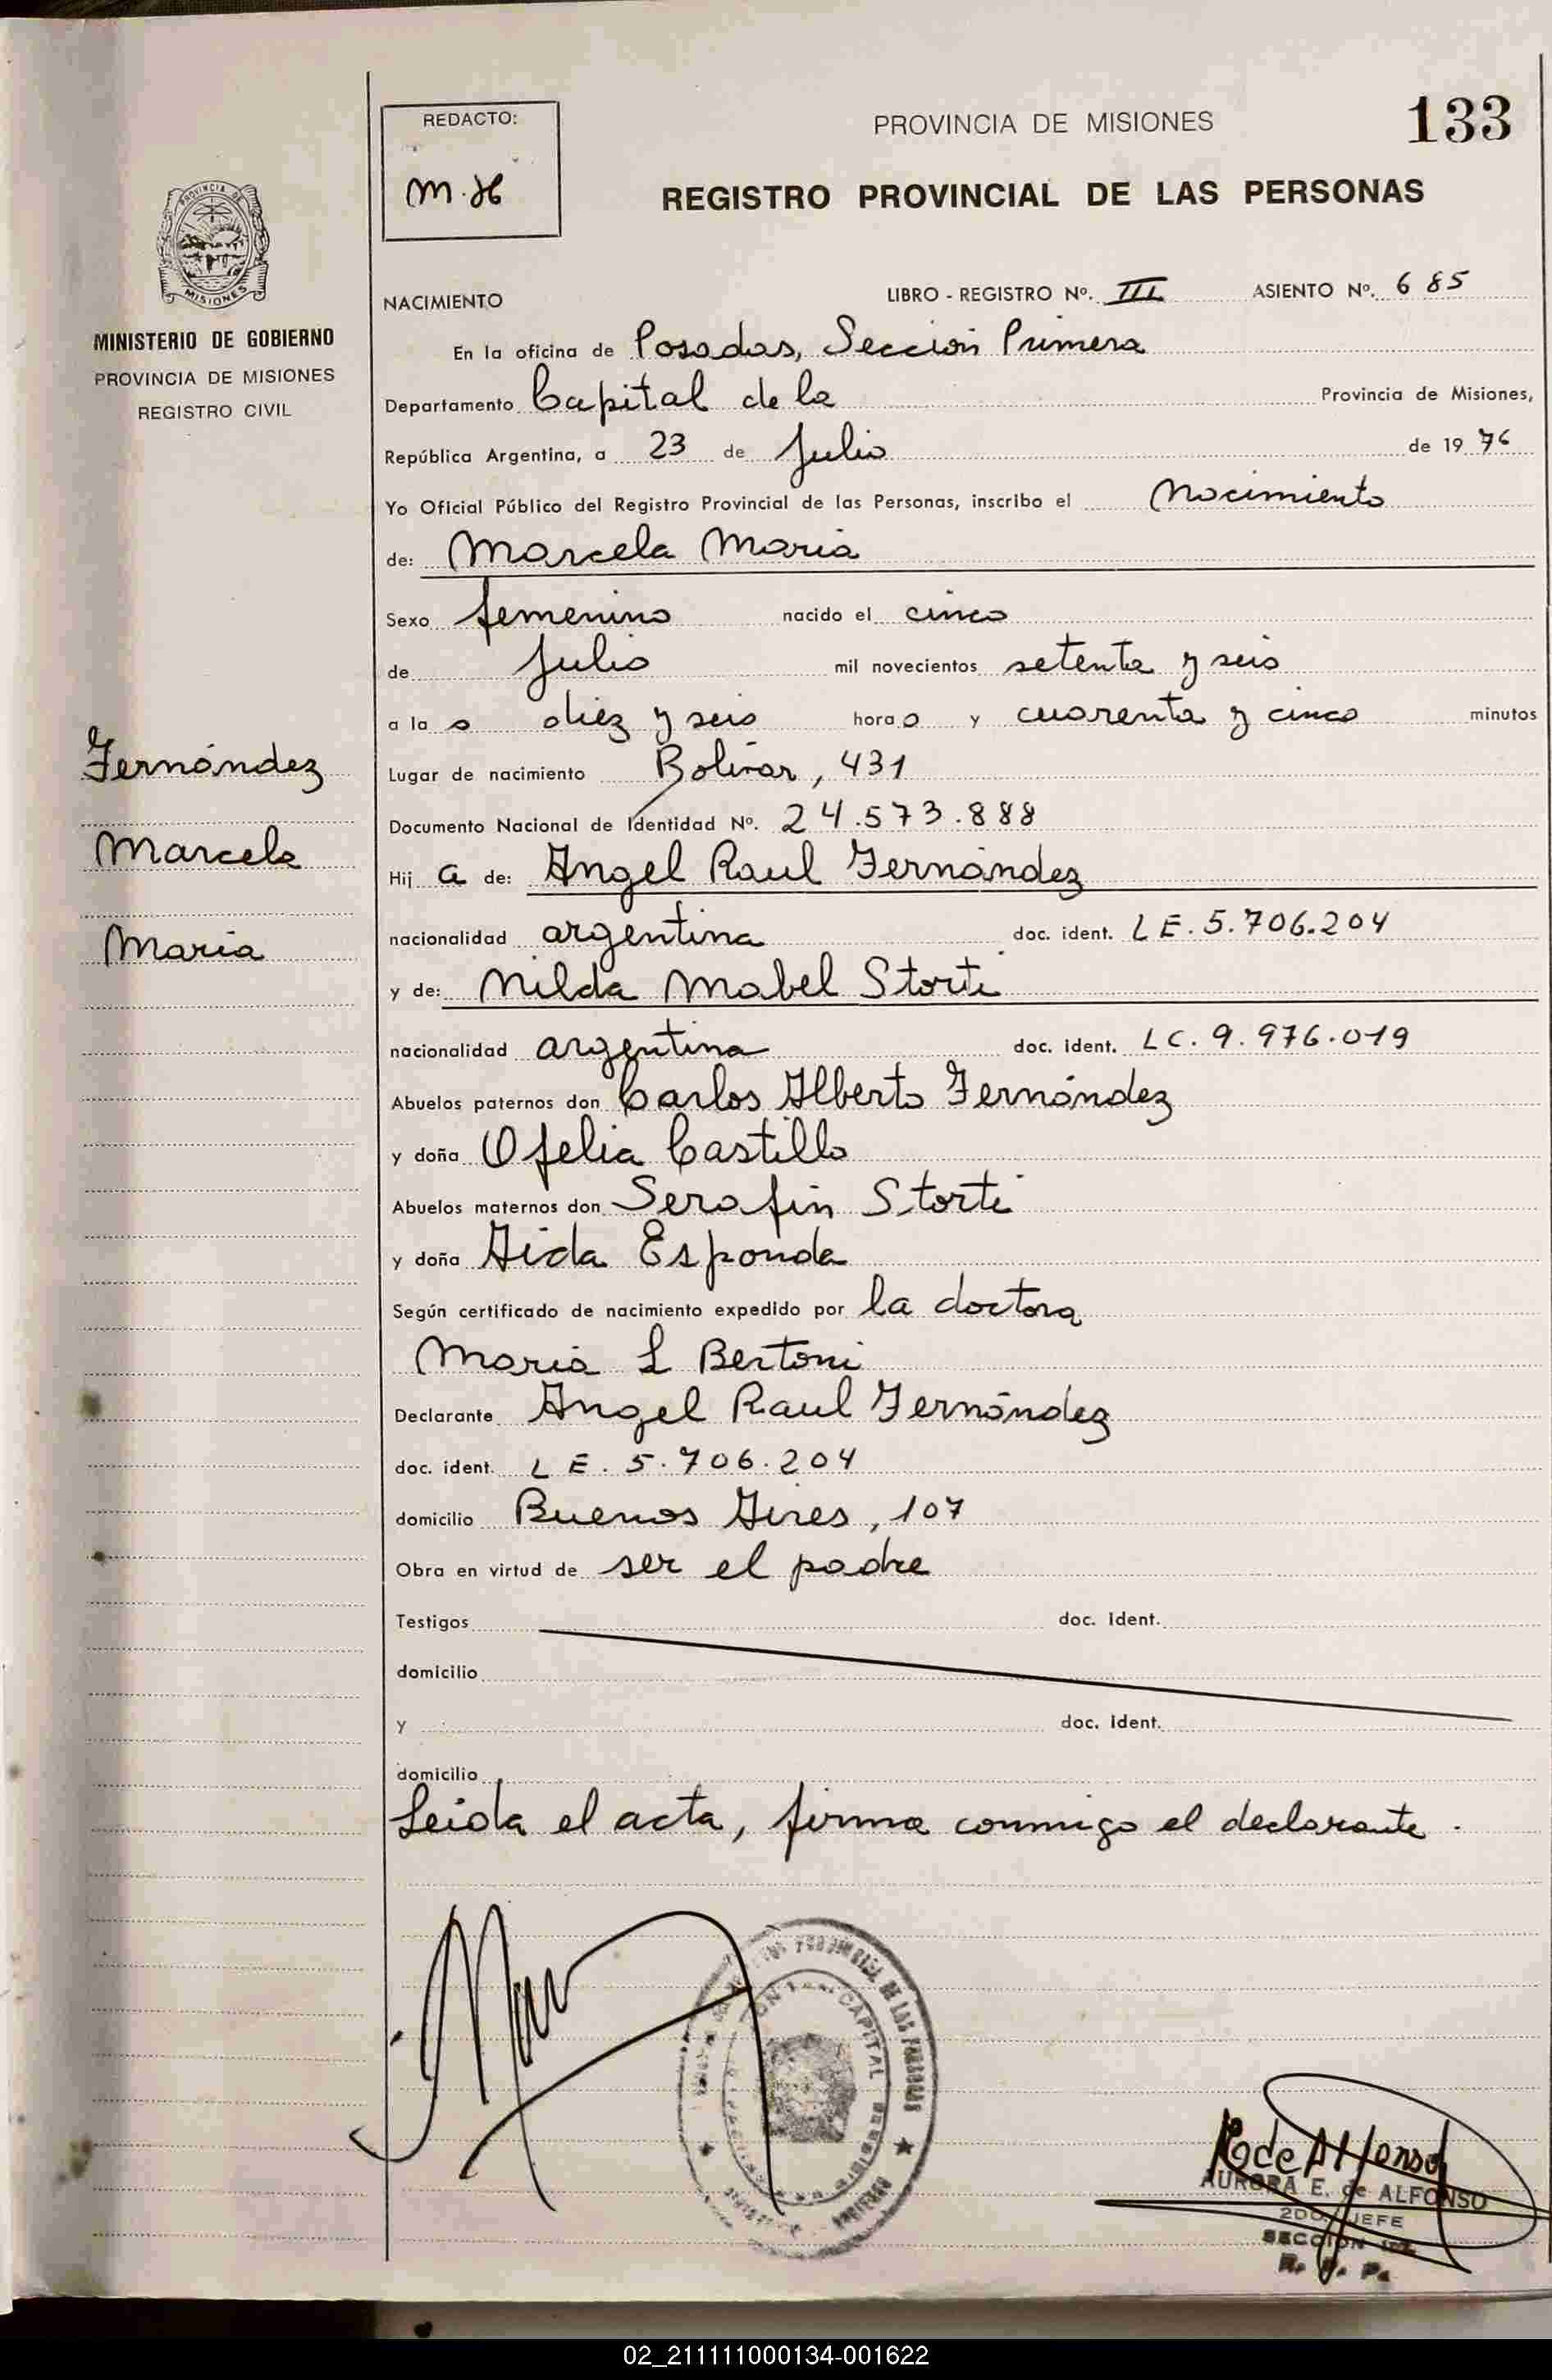 REDACTO:
M.H
PROVINCIA DE MISIONES
133
REGISTRO PROVINCIAL DE LAS PERSONAS
MISIONES
MINISTERIO DE GOBIERNO
PROVINCIA DE MISIONES
REGISTRO CIVIL
NACIMIENTO
LIBRO - REGISTRO Nº. III ASIENTO Nº. 685
En la oficina de Posadas, Sección Primera
Departamento Capital de la Provincia de Misiones,
República Argentina, a 23 de Julio de 1976
Yo Oficial Público del Registro Provincial de las Personas, inscribo el Nacimiento
de: Marcela Maria
Sexo femenino nacido el cinco
de Julio mil novecientos setenta y seis
a la s diez y seis hora s y cuarenta y cinco minutos
Fernández
Marcela
Maria
Lugar de nacimiento Bolívar, 431
Documento Nacional de Identidad Nº. 24.573.888
Hij a de: Angel Raul Fernández
nacionalidad argentina doc. ident. LE. 5.706.204
y de: Nilda Mabel Storti
nacionalidad argentina doc. ident. LC. 9.976.019
Abuelos paternos don Carlos Alberto Fernández
y doña Ofelia Castillo
Abuelos maternos don Serafin Storti
y doña Aida Esponda
Según certificado de nacimiento expedido por la doctora
Maria L Bertoni
Declarante Angel Raul Fernández
doc. ident. L E. 5.706.204
domicilio Buenos Aires, 107
Obra en virtud de ser el padre
Testigos doc. ident.
domicilio
y doc. ident.
domicilio
Leida el acta, firma conmigo el declarante.
CAPITAL
DE LAS PERSONAS
AURORA E. de ALFONSO
2DO. JEFE
SECCION
R. P. P.
02_211111000134-001622